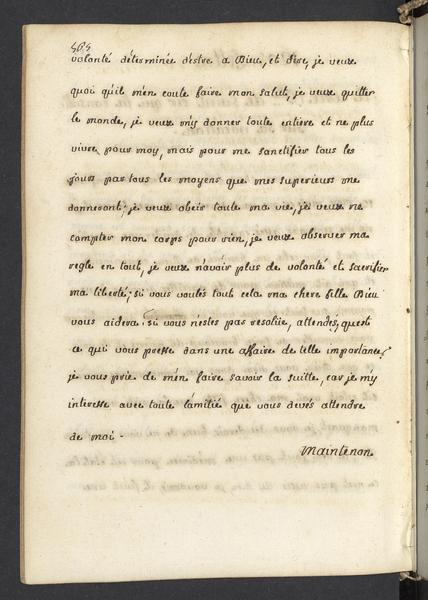 565
volonté déterminée d'estre a Dieu, et dire, je veux
quoi qu'il m'en coute faire mon salut, je veux quitter
le monde, je veux m'y donner toute entiere et ne plus
vivre pour moy, mais pour me sanctifier tous les
jours par tous les moyens que mes superieurs me
donneront; je veux obeir toute ma vie, je veux ne
compter mon corps pour rien, je veux observer ma
regle en tout, je veux n'avoir plus de volonté et sacrifier
ma liberté; si vous voulés tout cela ma chere fille Dieu
vous aidera. Si vous n'estes pas resolüe, attendés, qu'est
ce qui vous presse dans une affaire de telle importance,
je vous prie de m'en faire savoir la suitte, car je m'y
interesse avec toute l'amitié que vous devés attendre
de moi.
Maintenon